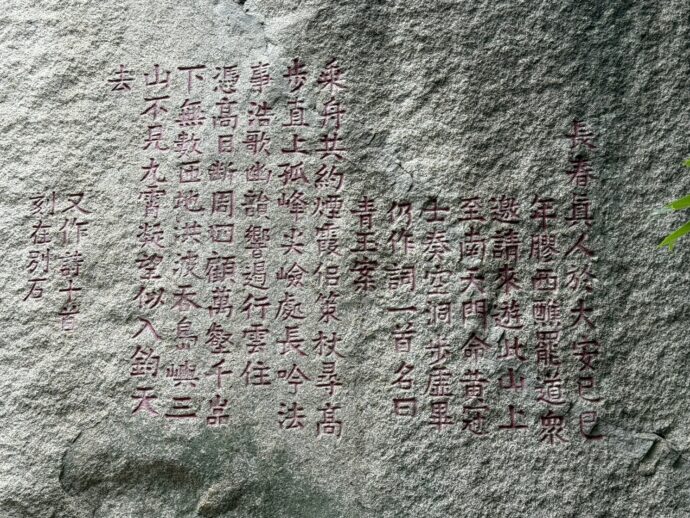 長春真人於大安己巳
年膠西醮罷道衆
邀請來遊此山上
至南天門命黃冠
士奏空洞步虛畢
仍作詞一首名曰
青玉案
乘舟共約煙霞侶策杖尋高
步直上孤峰尖嶮處長吟法
事浩歌幽韻響遏行雲住
憑高目斷周四顧萬壑千嵒
下無數匝地洪波吞島嶼三
山不見九霄凝望似入鈞天
去
又作詩十首
刻在別石